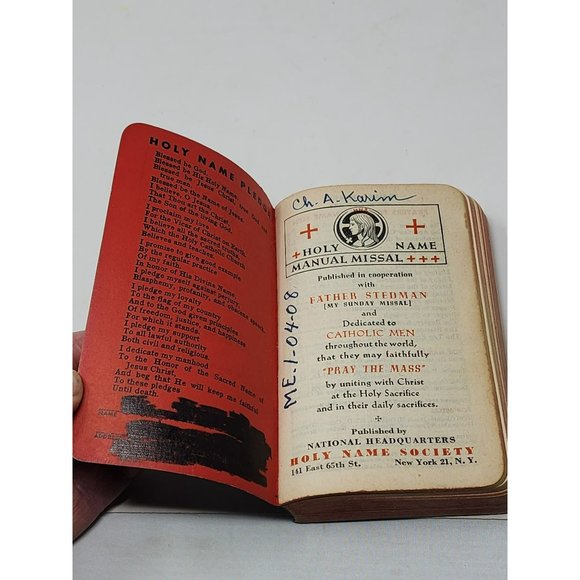 HOLY NAME PLEDGE
Blessed be God.
Blessed be His Holy Name.
Blessed be Jesus Christ, true God and
true man.
Blessed be the Name of Jesus.
I believe, O Jesus,
That Thou art the Christ,
The Son of the Living God.
I proclaim my love
For the Vicar of Christ on Earth.
I believe all the sacred truths
Which the Holy Catholic Church
Believes and teaches.
I promise to give good example
By the regular practice
Of my faith.
In honor of His Divine Name
I pledge myself against perjury,
Blasphemy, profanity, and obscene speech.
I pledge my loyalty
To the flag of my country
And to the God given principles
Of freedom, justice, and happiness
For which it stands.
I pledge my support
To all lawful authority
Both civil and religious.
I dedicate my manhood
To the Honor of the Sacred Name of
Jesus Christ,
And beg that He will keep me faithful
To these pledges
Until death.
NAME
Ch. A. Karim
HOLY NAME
MANUAL MISSAL
Published in cooperation
with
FATHER STEDMAN
[MY SUNDAY MISSAL]
and
Dedicated to
CATHOLIC MEN
throughout the world,
that they may faithfully
"PRAY THE MASS"
by uniting with Christ
at the Holy Sacrifice
and in their daily sacrifices.
Published by
NATIONAL HEADQUARTERS
HOLY NAME SOCIETY
141 East 65th St. New York 21, N. Y.
ME.1-04-08